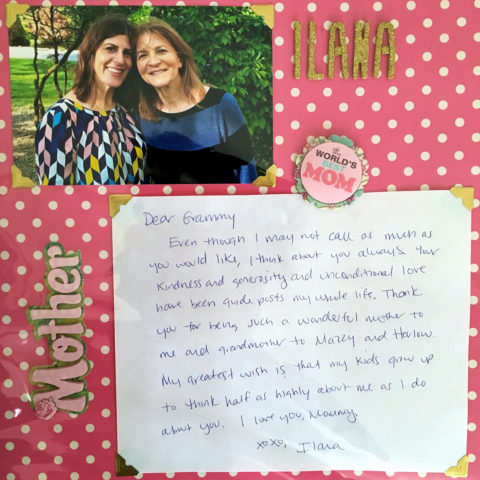 ILANA
the
WORLD'S
BEST
MOM
Mother
Dear Grammy
Even though I may not call as much as
you would like, I think about you always. Your
kindness and generosity and unconditional love
have been guide posts my whole life. Thank
you for being such a wonderful mother to
me and grandmother to Mazzy and Harlow.
My greatest wish is that my kids grow up
to think half as highly about me as I do
about you. I love you, Mommy.
xoxo,
Ilana